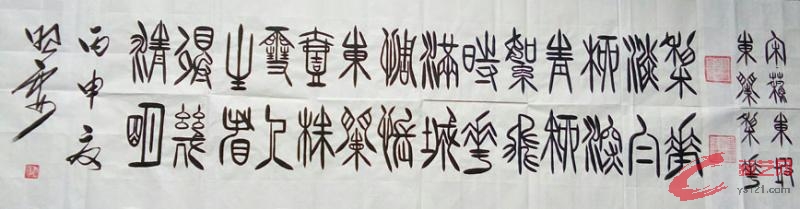 宋蘇東坡
東闌梨花
梨花
淡白
柳深
青柳
絮飛
時花
滿城
惆悵
東闌
壹株
雪人
生看
得幾
清明
丙申夏